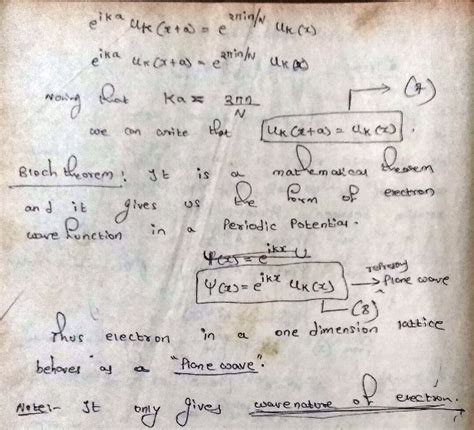 e^{ika} u_K(x+a) = e^{2πin/N} u_K(x)
e^{ika} u_K(x+a) = e^{2πin/N} u_K(x)
Ka = 2πn/N → (7)
we can write that u_K(x+a) = u_K(x).
Bloch theorem: It is a mathematical theorem
and it gives us the form of electron
wave function in a Periodic Potential.
Ψ(x) = e^{ikx} U
Ψ(x) = e^{ikx} u_K(x) → Plane wave
(8)
Thus electron in a one dimension lattice
behaves as a "Plane wave".
Note:- It only gives wave nature of electron.